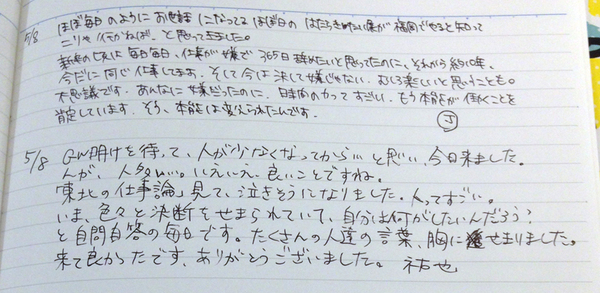 5/8
ほぼ毎日のようにお世話になってるほぼ日の はたらきたい展が福岡でやると知って
こりゃ行かねば。と思ってきました。
新卒の頃は毎日毎日、仕事が嫌で 365日辞めたいと思ってたのに、それから約10年、
今だに同じ仕事してます。そして今は決して嫌じゃない。むしろ楽しいと思うことも。
不思議です。あんなに嫌だったのに、日または力ってすごい。もう本能が働くことを
肯定しています。そう、本能は変えられたんです。
J
5/8 GW明けを待って、人が少なくなってからがいいと思い、今日来ました。
んが、人多い…。いえいえ、良いことですね。
「東北の仕事論」見て、泣きそうになりました。人ってすごい。
いま、色々と決断をせまられていて、自分は何がしたいんだろう?
と自問自答の毎日です。たくさんの人達の言葉、胸にせまりました。
来て良かったです、ありがとうございました。 祐也